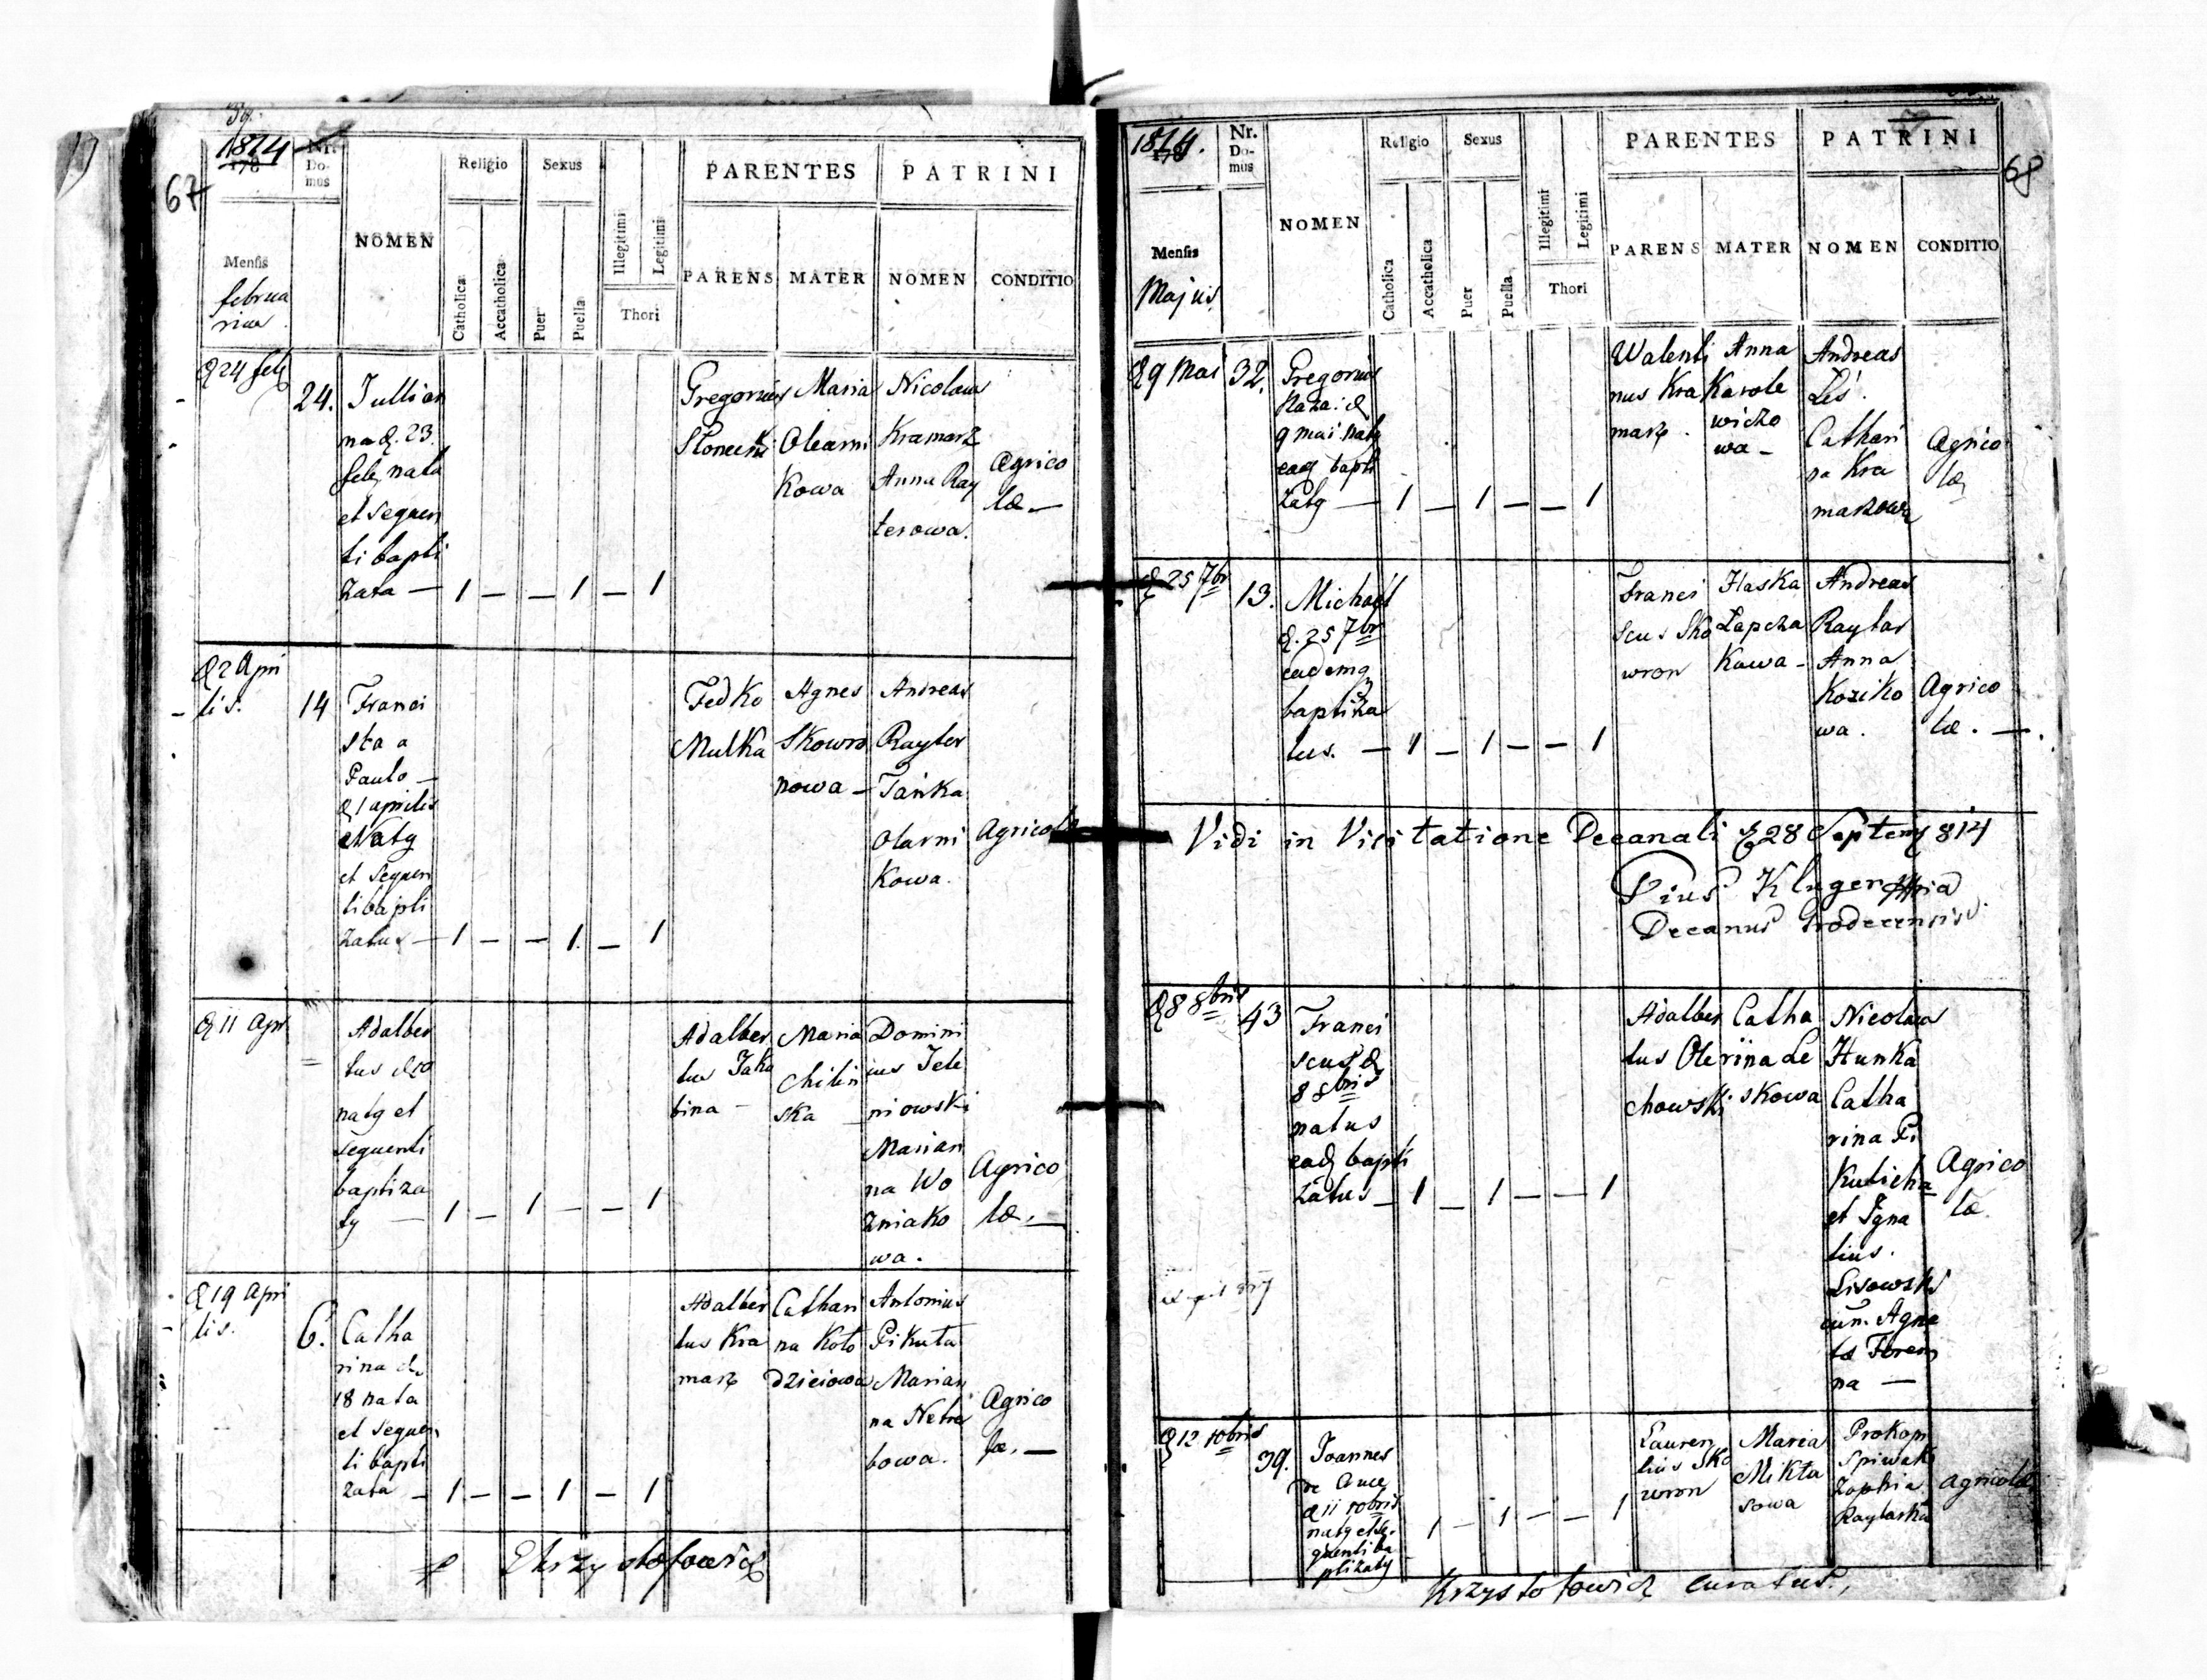 67
1814
178
Nr.
Do-
mus
NOMEN
Religio
Sexus
Catholica
Accatholica
Puer
Puella
Illegitimi
Legitimi
Thori
PARENTES
PATRINI
PARENS
MATER
NOMEN
CONDITIO
Mensis
februa
rius
24 feb
24.
Jullian
na d. 23.
feb nata
et sequen
ti bapti
zata — 1 — — 1 — 1
Gregorius
Słonecki
Maria
Olearni
Kowa
Nicolaus
Kramarz
Anna Ray
terowa.
Agrico
læ —
2 Apri
lis.
14
Franci
sca a
Paulo —
1 aprilis
Natq
et sequen
ti bapti
zatus — 1 — — 1. — 1
Fedko
Mulka
Agnes
Skowro
nowa —
Andreas
Rayter
Tańka
Olarni
Kowa.
Agricolæ
11 Apr
=
Adalber
tus d 10
natq et
sequenti
baptiza
tq — 1 — 1 — — 1
Adalber
tus Jaku
bina —
Maria
Chilin
ska —
Domini
cus Tele
niowski
Marian
na Wo
zniako
wa.
Agrico
læ. —
19 Apri
lis.
6.
Catha
rina d.
18 nata
et sequen
ti bapti
zata — 1 — — 1 — 1
Adalber
tus Kra
marz
Cathari
na Koło
dzieiowa
Antonius
Pikuta
Marian
na Netre
bowa.
Agrico
læ. —
Chrzystofowicz
68
1814.
Nr.
Do-
mus
NOMEN
Religio
Sexus
Catholica
Accatholica
Puer
Puella
Illegitimi
Legitimi
Thori
PARENTES
PATRINI
PARENS
MATER
NOMEN
CONDITIO
Mensis
Majus
9 Mai
32.
Gregorius
Naza: d
9 mai natq
ead bapti
zatq — 1 — 1 — — 1
Walenti
nus Kra
marz.
Anna
Karole
wiczo
wa —
Andreas
Leś.
Cathari
na Kra
marzowa
Agrico
læ
25 7br
13.
Michael
d. 25 7br
eademq
baptiza
tus. — 1 — 1 — — 1
Franci
scus Sko
wron
Haska
Łapcza
Kowa —
Andreas
Raytar
Anna
Koziko
wa.
Agrico
læ. —.
Vidi in Visitatione Decanali d 28 Septemb 814
Pius Kluger
Decanus Grodecensis
8 8bris
43
Franci
scus d
8 8bris
natus
ead bapti
zatus — 1 — 1 — — 1
Adalber
tus Ole
chowski
Catha
rina Le
skowa
Nicolaus
Hunka
Catha
rina Pi
Kulicha
et Igna
tius.
Lisowski
cum Agne
ta Foren
na —
Agrico
læ.
12 10bris
39.
Joannes
de Cruce
d 11 10bris
natq et se-
quenti ba
ptizatq — 1 — 1 — — 1
Lauren
tius Sko
wron
Maria
Mikta
sowa
Prokop
Spiwak
Zophia
Raytarka
Agricolæ
Krzystofowicz Curatus.